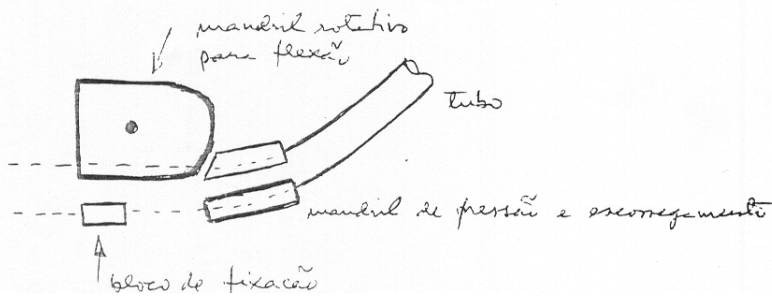 mandril rotativo
para flexão
tubo
mandril de pressão e escorregamento
bloco de fixação